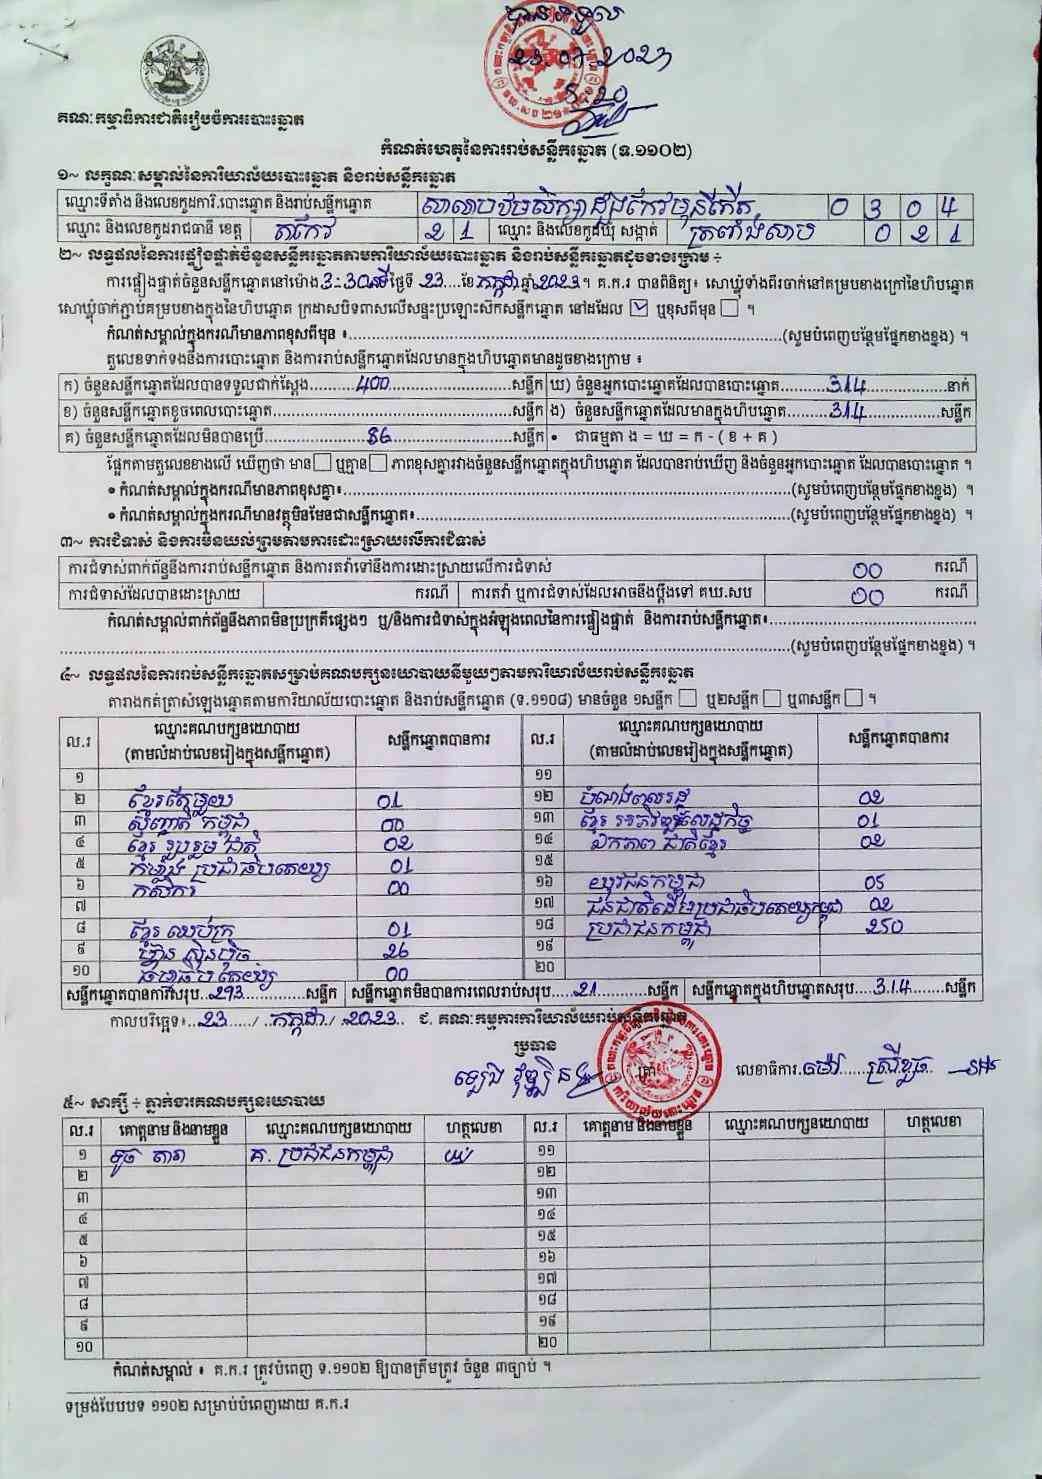 បានទទួល
23.07.2023
5:20
គណៈកម្មាធិការជាតិរៀបចំការបោះឆ្នោត
កំណត់ហេតុនៃការរាប់សន្លឹកឆ្នោត (ទ.១១០២)
១~ លក្ខណៈសម្គាល់នៃការិយាល័យបោះឆ្នោត និងរាប់សន្លឹកឆ្នោត
ឈ្មោះទីតាំង និងលេខកូដការិ.បោះឆ្នោត និងរាប់សន្លឹកឆ្នោត 0 3 0 4
ឈ្មោះ និងលេខកូដរាជធានី ខេត្ត តាកែវ 2 1 ឈ្មោះ និងលេខកូដឃុំ សង្កាត់ 0 2 1
២~ លទ្ធផលនៃការផ្ទៀងផ្ទាត់ចំនួនសន្លឹកឆ្នោតតាមការិយាល័យបោះឆ្នោត និងរាប់សន្លឹកឆ្នោតដូចខាងក្រោម ÷
ការផ្ទៀងផ្ទាត់ចំនួនសន្លឹកឆ្នោតនៅម៉ោង 3:30 ថ្ងៃទី 23 ខែ កក្កដា ឆ្នាំ 2023 ។ គ.ក.រ បានពិនិត្យ៖ សោឃ្លុំទាំងពីរចាក់នៅគម្របខាងក្រៅនៃហិបឆ្នោត
សោឃ្លុំចាក់ភ្ជាប់គម្របខាងក្នុងនៃហិបឆ្នោត ក្រដាសបិទពាសលើសន្ទះប្រឡោះស៊កសន្លឹកឆ្នោត នៅដដែល ☑ ឬខុសពីមុន ☐ ។
កំណត់សម្គាល់ក្នុងករណីមានភាពខុសពីមុន ៖ (សូមបំពេញបន្ថែមផ្នែកខាងខ្នង) ។
តួលេខទាក់ទងនឹងការបោះឆ្នោត និងការរាប់សន្លឹកឆ្នោតដែលមានក្នុងហិបឆ្នោតមានដូចខាងក្រោម ៖
ក) ចំនួនសន្លឹកឆ្នោតដែលបានទទួលជាក់ស្តែង 400 សន្លឹក ឃ) ចំនួនអ្នកបោះឆ្នោតដែលបានបោះឆ្នោត 314 នាក់
ខ) ចំនួនសន្លឹកឆ្នោតខូចពេលបោះឆ្នោត សន្លឹក ង) ចំនួនសន្លឹកឆ្នោតដែលមានក្នុងហិបឆ្នោត 314 សន្លឹក
គ) ចំនួនសន្លឹកឆ្នោតដែលមិនបានប្រើ 86 សន្លឹក • ជាធម្មតា ង = ឃ = ក - ( ខ + គ )
ផ្អែកតាមតួលេខខាងលើ ឃើញថា មាន ☐ ឬគ្មាន ☐ ភាពខុសគ្នារវាងចំនួនសន្លឹកឆ្នោតក្នុងហិបឆ្នោត ដែលបានរាប់ឃើញ និងចំនួនអ្នកបោះឆ្នោត ដែលបានបោះឆ្នោត ។
• កំណត់សម្គាល់ក្នុងករណីមានភាពខុសគ្នា៖ (សូមបំពេញបន្ថែមផ្នែកខាងខ្នង) ។
• កំណត់សម្គាល់ក្នុងករណីមានវត្ថុមិនមែនជាសន្លឹកឆ្នោត៖ (សូមបំពេញបន្ថែមផ្នែកខាងខ្នង) ។
៣~ ការជំទាស់ និងការមិនយល់ព្រមតាមការដោះស្រាយលើការជំទាស់
ការជំទាស់ពាក់ព័ន្ធនឹងការរាប់សន្លឹកឆ្នោត និងការតវ៉ាទៅនឹងការដោះស្រាយលើការជំទាស់ 00 ករណី
ការជំទាស់ដែលបានដោះស្រាយ ករណី ការតវ៉ា ឬការជំទាស់ដែលអាចនឹងប្តឹងទៅ គឃ.សប 00 ករណី
កំណត់សម្គាល់ពាក់ព័ន្ធនឹងភាពមិនប្រក្រតីផ្សេងៗ ឬ/និងការជំទាស់ក្នុងអំឡុងពេលនៃការផ្ទៀងផ្ទាត់ និងការរាប់សន្លឹកឆ្នោត៖
(សូមបំពេញបន្ថែមផ្នែកខាងខ្នង) ។
៤~ លទ្ធផលនៃការរាប់សន្លឹកឆ្នោតសម្រាប់គណបក្សនយោបាយនីមួយៗតាមការិយាល័យរាប់សន្លឹកឆ្នោត
តារាងកត់ត្រាសំឡេងឆ្នោតតាមការិយាល័យបោះឆ្នោត និងរាប់សន្លឹកឆ្នោត (ទ.១១០៨) មានចំនួន ១សន្លឹក ☐ ឬ២សន្លឹក ☐ ឬ៣សន្លឹក ☐ ។
ល.រ ឈ្មោះគណបក្សនយោបាយ សន្លឹកឆ្នោតបានការ ល.រ ឈ្មោះគណបក្សនយោបាយ សន្លឹកឆ្នោតបានការ
(តាមលំដាប់លេខរៀងក្នុងសន្លឹកឆ្នោត) (តាមលំដាប់លេខរៀងក្នុងសន្លឹកឆ្នោត)
១ ១១
២ ខ្មែរតែមួយ 01 ១២ 02
៣ សញ្ជាតិ កម្ពុជា 00 ១៣ ខ្មែរ អភិវឌ្ឍន៍សេដ្ឋកិច្ច 01
៤ ខ្មែរ រួបរួម ជាតិ 02 ១៤ ឯកភាព ជាតិខ្មែរ 02
៥ កម្លាំង ប្រជាធិបតេយ្យ 01 ១៥
៦ កសិករ 00 ១៦ យុវជនកម្ពុជា 05
៧ ១៧ ជនជាតិដើមប្រជាធិបតេយ្យកម្ពុជា 02
៨ ខ្មែរ ឈប់ក្រ 01 ១៨ ប្រជាជនកម្ពុជា 250
៩ ហ៊្វុន ស៊ិនប៉ិច 26 ១៩
១០ ធម្មាធិបតេយ្យ 00 ២០
សន្លឹកឆ្នោតបានការសរុប 293 សន្លឹក សន្លឹកឆ្នោតមិនបានការពេលរាប់សរុប 21 សន្លឹក សន្លឹកឆ្នោតក្នុងហិបឆ្នោតសរុប 314 សន្លឹក
កាលបរិច្ឆេទ៖ 23 / កក្កដា / 2023 ជ. គណៈកម្មការការិយាល័យរាប់សន្លឹកឆ្នោត
ប្រធាន
លេខាធិការ
៥~ សាក្សី ÷ ភ្នាក់ងារគណបក្សនយោបាយ
ល.រ គោត្តនាម និងនាមខ្លួន ឈ្មោះគណបក្សនយោបាយ ហត្ថលេខា ល.រ គោត្តនាម និងនាមខ្លួន ឈ្មោះគណបក្សនយោបាយ ហត្ថលេខា
១ ទូច តារា គ. ប្រជាជនកម្ពុជា ១១
២ ១២
៣ ១៣
៤ ១៤
៥ ១៥
៦ ១៦
៧ ១៧
៨ ១៨
៩ ១៩
១០ ២០
កំណត់សម្គាល់ ៖ គ.ក.រ ត្រូវបំពេញ ទ.១១០២ ឱ្យបានត្រឹមត្រូវ ចំនួន ៣ច្បាប់ ។
ទម្រង់បែបបទ ១១០២ សម្រាប់បំពេញដោយ គ.ក.រ